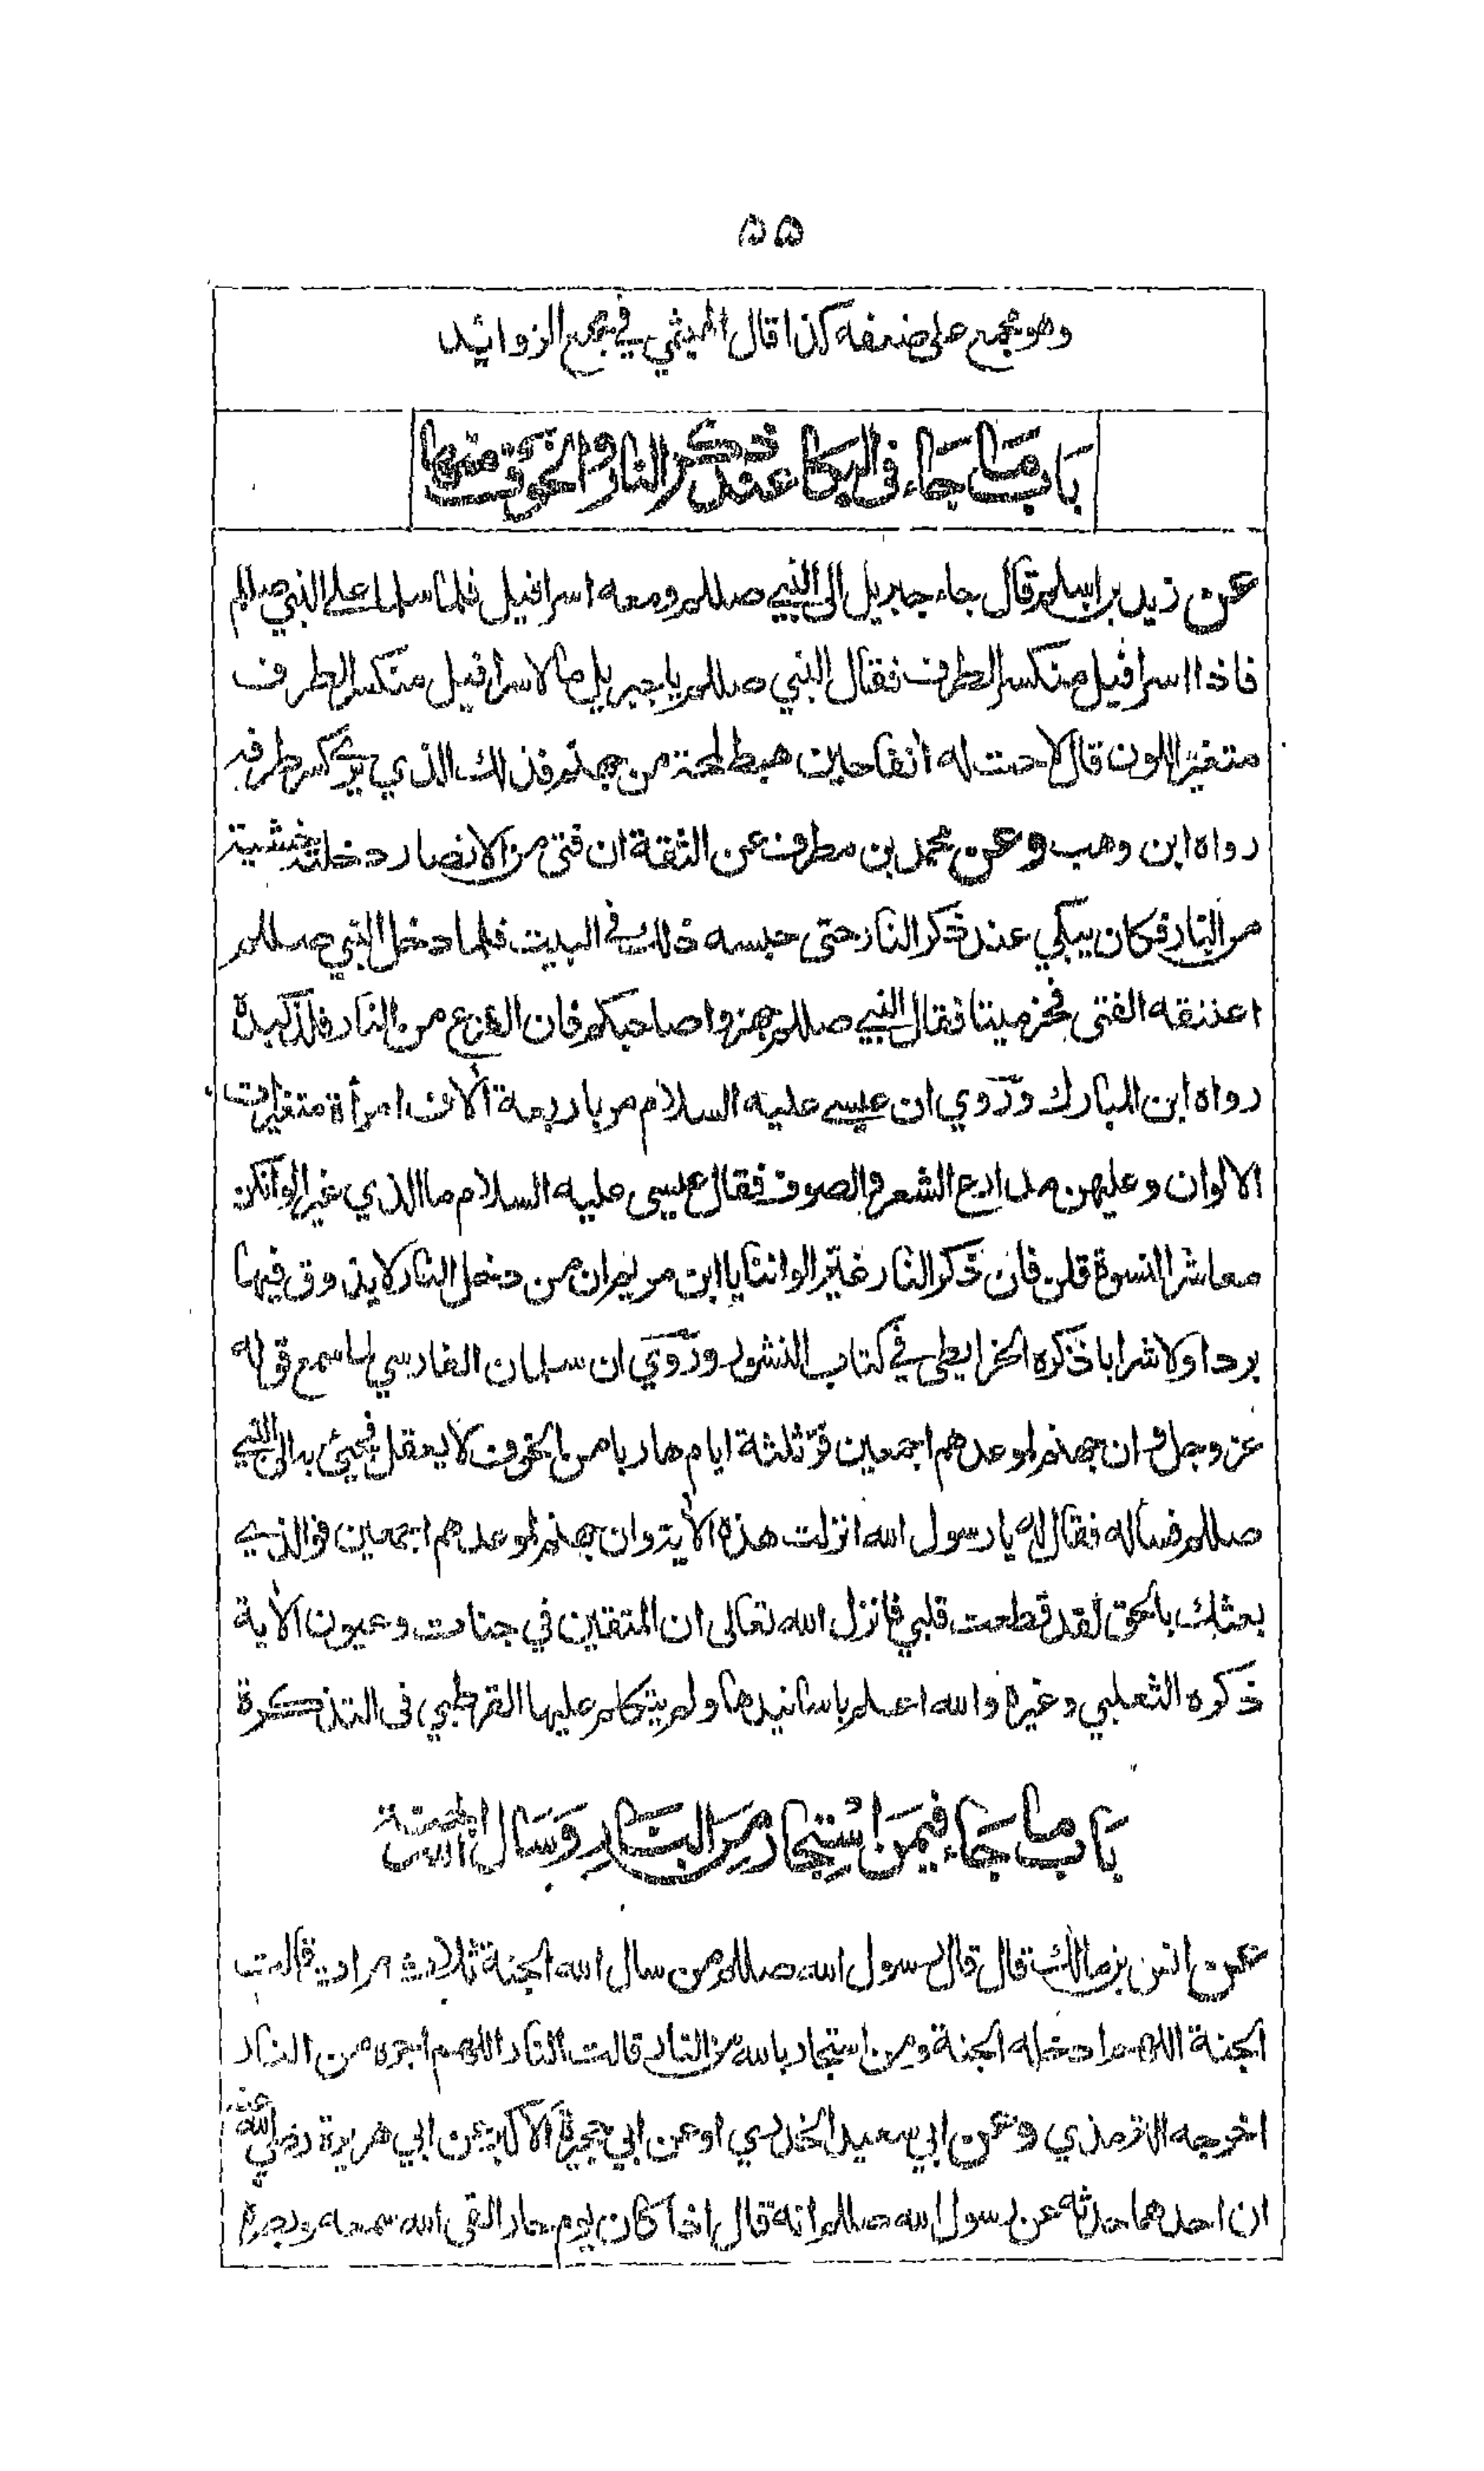 ۵۵
وهو مجمع على ضعفه كذا قال الهيثمي في مجمع الزوائد
باب ما جاء في البكا عند ذكر النار والخوف منها
عن زيد بن اسلم قال جاء جبريل الى النبي صللم ومعه اسرافيل فلما سلما على النبي صللم
فاذا اسرافيل منكسر الطرف فقال النبي صللم يا جبريل ما لاسرافيل منكسر الطرف
متغير اللون قال لاحت له آنفا حين هبط لمحة من جهنم فذلك الذي كسر طرفه
رواه ابن وهب وعن محمد بن مطرف عن الثقة ان فتى من الانصار دخلته خشية
من النار فكان يبكي عند ذكر النار حتى حبسه ذلك في البيت فلما دخل النبي صللم
اعتنقه الفتى فخر ميتا فقال النبي صللم جهزوا صاحبكم فان الفزع من النار فلذ كبده
رواه ابن المبارك وروي ان عيسى عليه السلام مر باربعة آلاف امرأة متغيرات
الالوان وعليهن مدارع الشعر والصوف فقال عيسى عليه السلام ما الذي غير الوانكن
معاشر النسوة قلن فان ذكر النار غير الواننا يا ابن مريم ان من دخل النار لا يذوق فيها
بردا ولا شرابا ذكره الخرايطي في كتاب النشور وروي ان سلمان الفارسي لما سمع قوله
عز وجل وان جهنم لموعدهم اجمعين فر ثلثة ايام هاربا من الخوف لا يعقل فجيئ به الى النبي
صللم فساله فقال له يا رسول الله انزلت هذه الآية وان جهنم لموعدهم اجمعين فوالذي
بعثك بالحق لقد قطعت قلبي فانزل الله تعالى ان المتقين في جنات وعيون الآية
ذكره الثعلبي وغيره والله اعلم باسانيدها ولم يتكلم عليها القرطبي في التذكرة
باب ما جاء فيمن استجار من النار وسال الله الجنة
عن انس بن مالك قال قال رسول الله صللم من سال الله الجنة ثلاث مرات قالت
الجنة اللهم ادخله الجنة ومن استجار بالله من النار قالت النار اللهم اجره من النار
اخرجه الترمذي وعن ابي سعيد الخدري او عن ابي حجيرة الاكبر عن ابي هريرة رضي الله عنه
ان احدهما حدثه عن رسول الله صللم انه قال اذا كان يوم حار القى الله سمعه وبصره